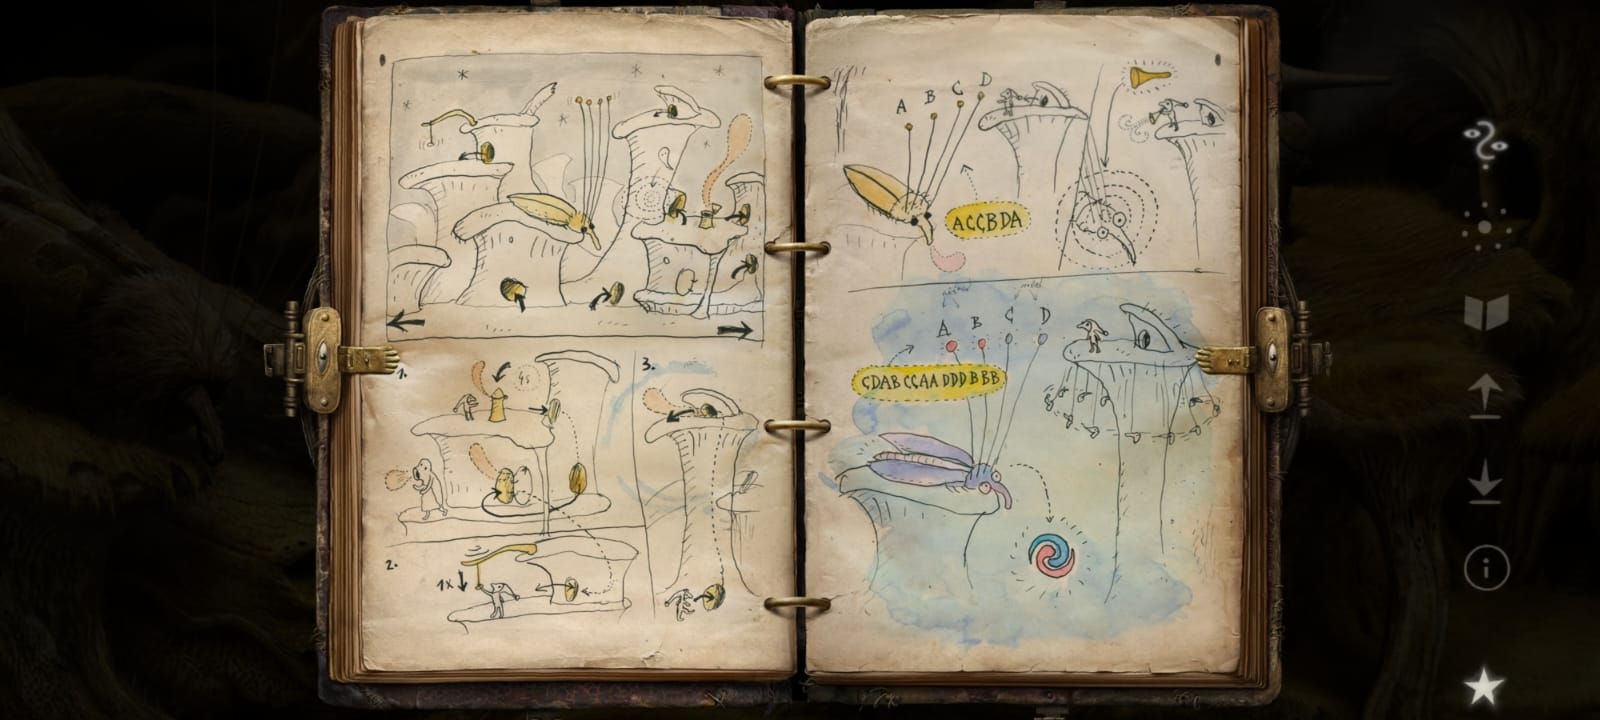 1.
4s
3.
2.
1x
A B C D
ACCBDA
A B C D
CDABCCAADDDBBB
i